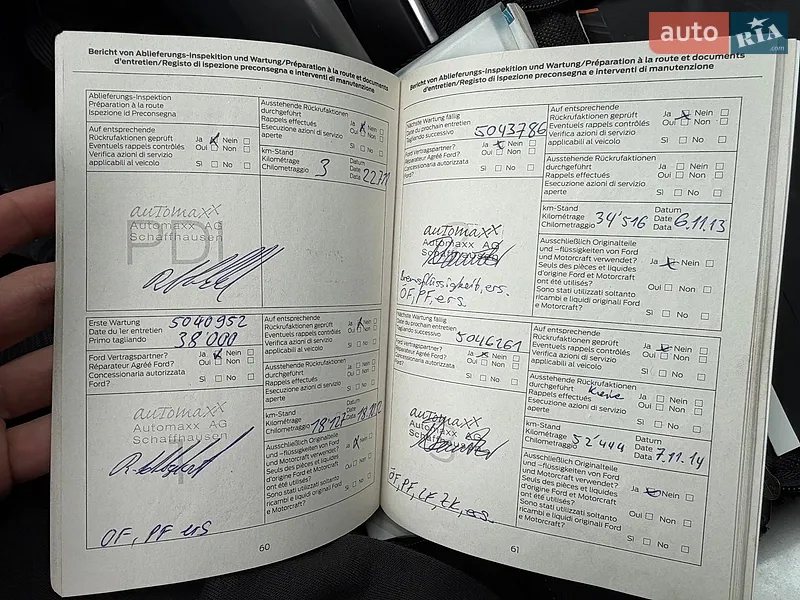 auto RIA .com
Bericht von Ablieferungs-Inspektion und Wartung/Préparation à la route et documents
d'entretien/Registo di ispezione preconsegna e interventi di manutenzione
Ablieferungs-Inspektion
Préparation à la route
Ispezione id Preconsegna
Auf entsprechende
Rückrufaktionen geprüft
Eventuels rappels contrôlés
Verifica azioni di servizio
applicabili al veicolo
Ja Nein
Oui Non
Sì No
Ausstehende Rückrufaktionen
durchgeführt
Rappels effectués
Esecuzione azioni di servizio
aperte
Ja Nein
Oui Non
Sì No
km-Stand
Kilométrage
Chilometraggio 3
Datum
Date
Data
PDI
auTomaxx
Automaxx AG
Schaffhausen
Erste Wartung 5040952
Date du 1er entretien
Primo tagliando 38'000
Ford Vertragspartner?
Réparateur Agréé Ford?
Concessionaria autorizzata
Ford?
Ja Nein
Oui Non
Sì No
Auf entsprechende
Rückrufaktionen geprüft
Eventuels rappels contrôlés
Verifica azioni di servizio
applicabili al veicolo
Ja Nein
Oui Non
Sì No
Ausstehende Rückrufaktionen
durchgeführt
Rappels effectués
Esecuzione azioni di servizio
aperte
Ja Nein
Oui Non
Sì No
km-Stand
Kilométrage
Chilometraggio 18'127
Datum
Date
Data
Ausschließlich Originalteile
und -flüssigkeiten von Ford
und Motorcraft verwendet?
Seuls des pièces et liquides
d'origine Ford et Motorcraft
ont été utilisés?
Sono stati utilizzati soltanto
ricambi e liquidi originali Ford
e Motorcraft?
Ja Nein
Oui Non
Sì No
auTomaxx
Automaxx AG
Schaffhausen
ÖF, PF ers
60
Bericht von Ablieferungs-Inspektion und Wartung/Préparation à la route et documents
d'entretien/Registo di ispezione preconsegna e interventi di manutenzione
Nächste Wartung fällig
Date du prochain entretien
Tagliando successivo
5043786
Ford Vertragspartner?
Réparateur Agréé Ford?
Concessionaria autorizzata
Ford?
Ja Nein
Oui Non
Sì No
Auf entsprechende
Rückrufaktionen geprüft
Eventuels rappels contrôlés
Verifica azioni di servizio
applicabili al veicolo
Ja Nein
Oui Non
Sì No
Ausstehende Rückrufaktionen
durchgeführt
Rappels effectués
Esecuzione azioni di servizio
aperte
Ja Nein
Oui Non
Sì No
km-Stand
Kilométrage
Chilometraggio 34'516
Datum
Date
Data 6.11.13
Ausschließlich Originalteile
und -flüssigkeiten von Ford
und Motorcraft verwendet?
Seuls des pièces et liquides
d'origine Ford et Motorcraft
ont été utilisés?
Sono stati utilizzati soltanto
ricambi e liquidi originali Ford
e Motorcraft?
Ja Nein
Oui Non
Sì No
auTomaxx
Automaxx AG
Schaffhausen
Bremsflüssigkeit, ers.
ÖF, PF, ers.
Nächste Wartung fällig
Date du prochain entretien
Tagliando successivo
5046261
Ford Vertragspartner?
Réparateur Agréé Ford?
Concessionaria autorizzata
Ford?
Ja Nein
Oui Non
Sì No
Auf entsprechende
Rückrufaktionen geprüft
Eventuels rappels contrôlés
Verifica azioni di servizio
applicabili al veicolo
Ja Nein
Oui Non
Sì No
Ausstehende Rückrufaktionen
durchgeführt Keine
Rappels effectués
Esecuzione azioni di servizio
aperte
Ja Nein
Oui Non
Sì No
km-Stand
Kilométrage
Chilometraggio 52'444
Datum
Date
Data 7.11.14
Ausschließlich Originalteile
und -flüssigkeiten von Ford
und Motorcraft verwendet?
Seuls des pièces et liquides
d'origine Ford et Motorcraft
ont été utilisés?
Sono stati utilizzati soltanto
ricambi e liquidi originali Ford
e Motorcraft?
Ja Nein
Oui Non
Sì No
auTomaxx
Automaxx AG
Schaffhausen
ÖF, PF, LF, ZK, ers.
61